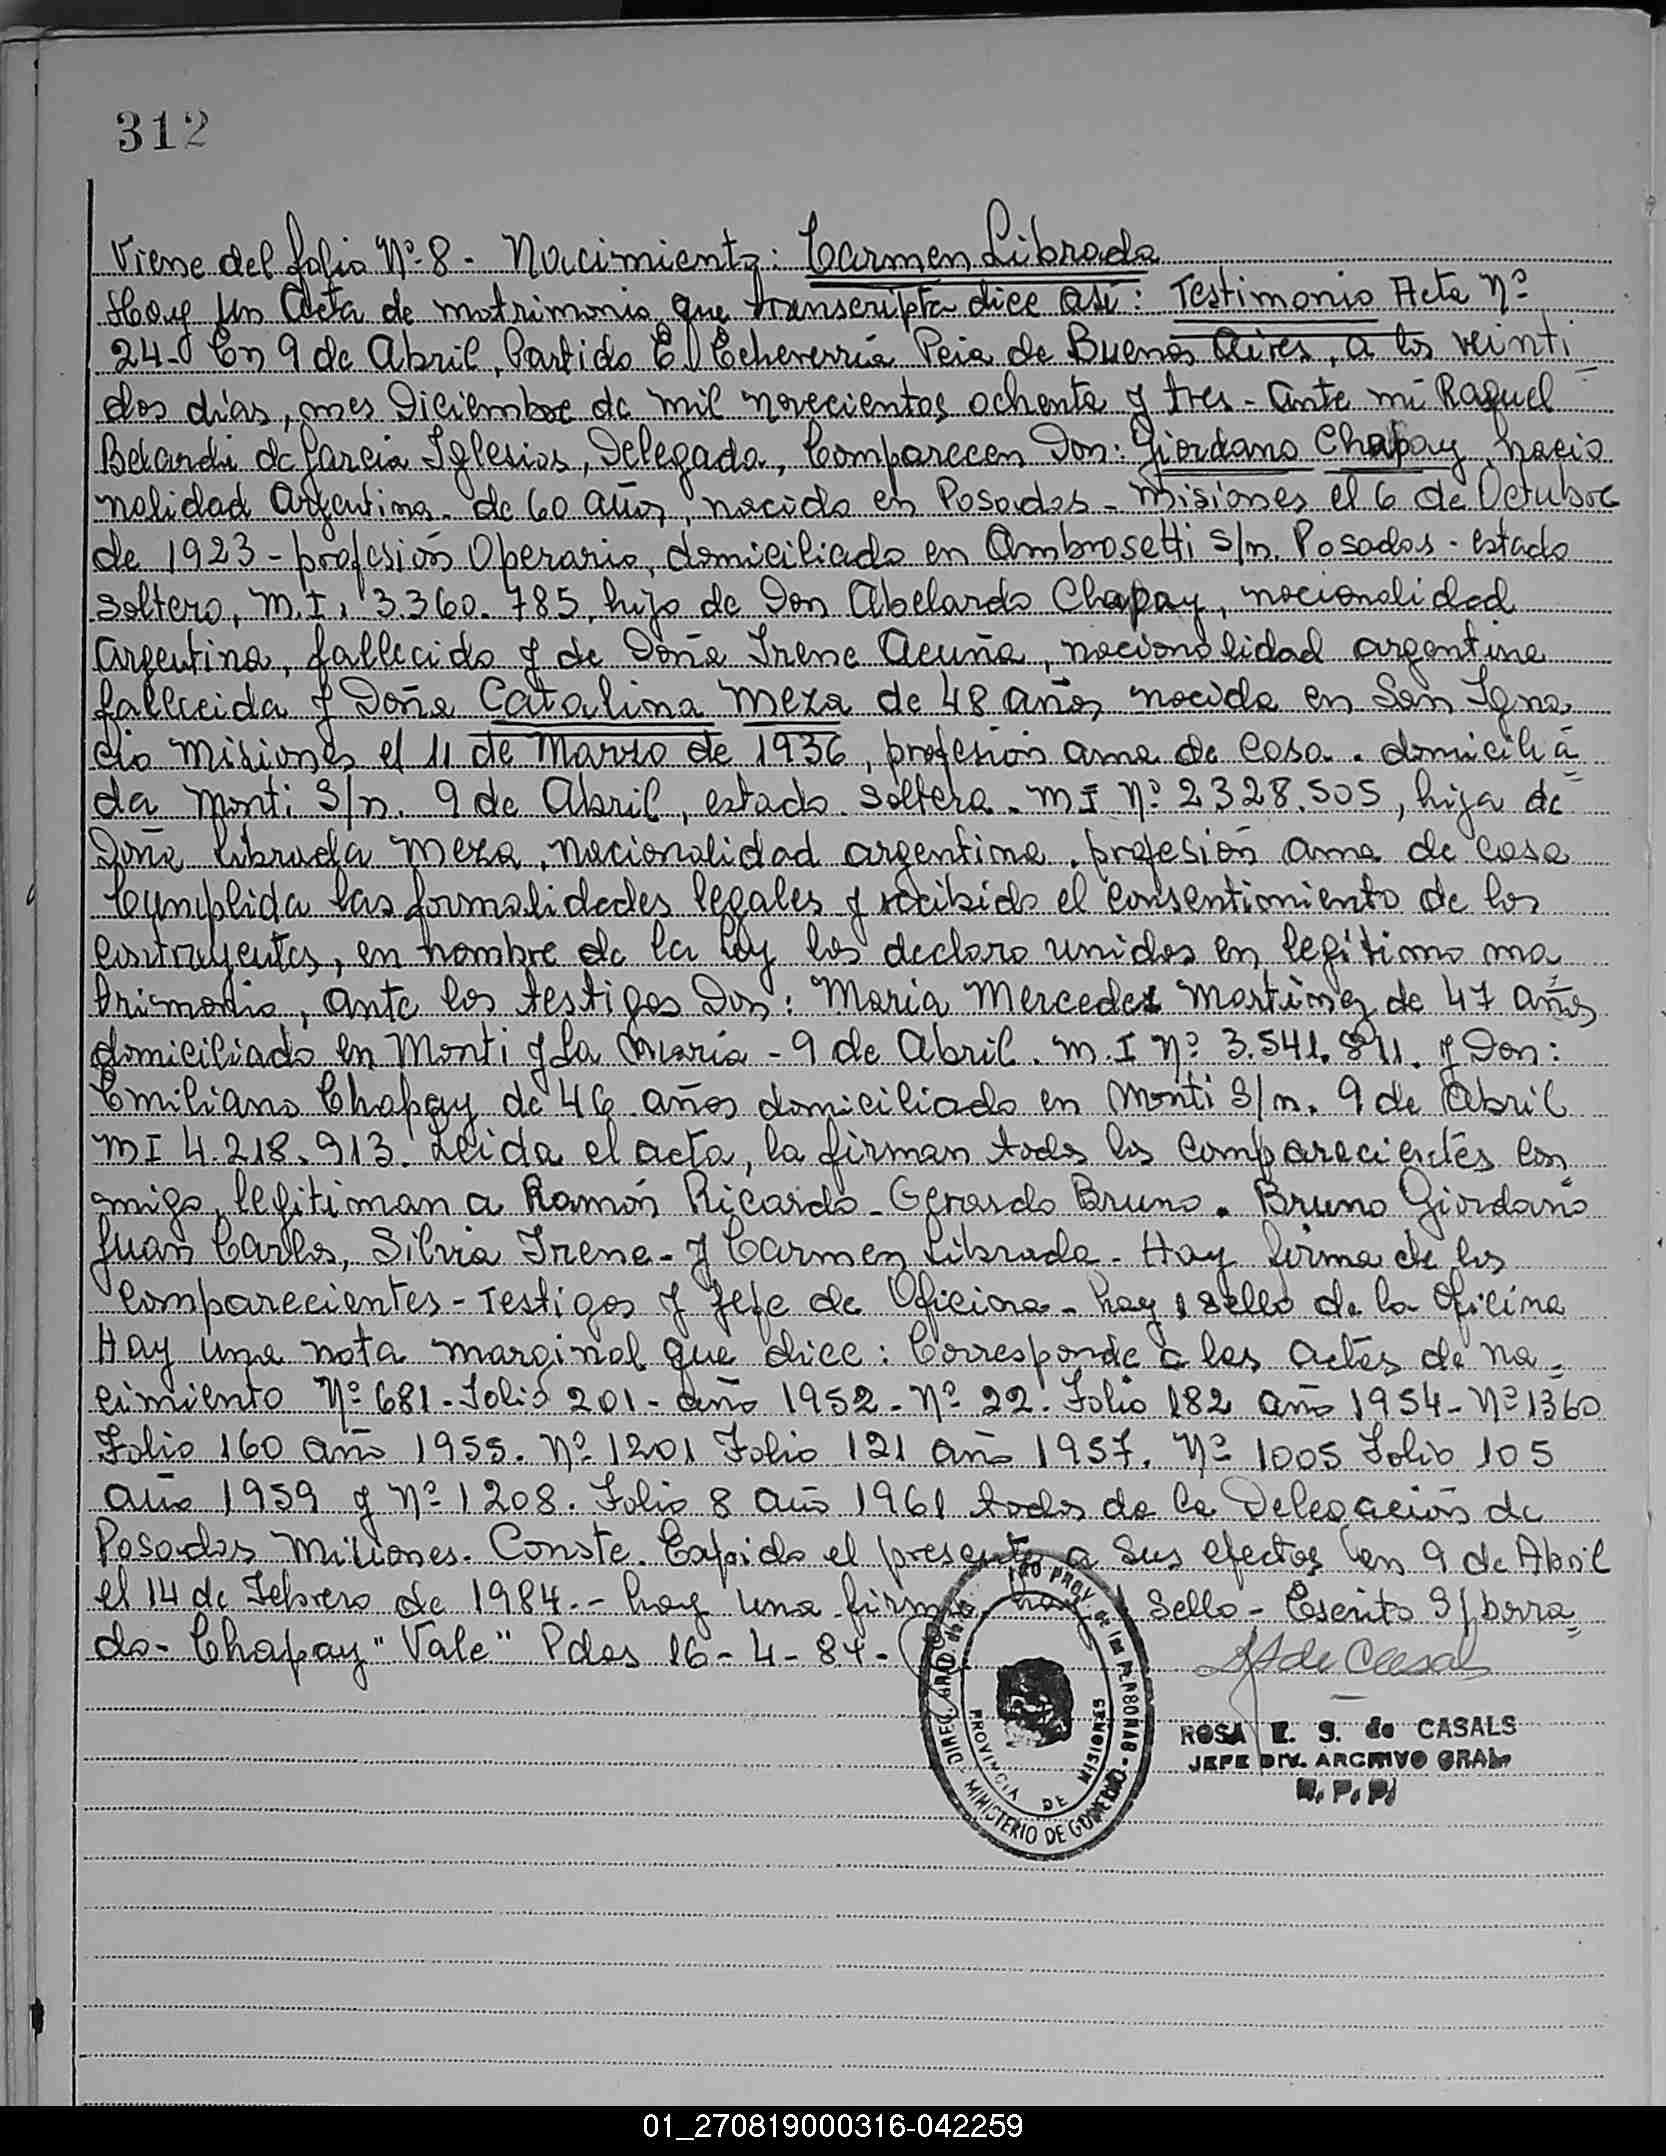 312
Viene del folio Nº 8 - Nacimiento: Carmen Librada
Hay un Acta de matrimonio que transcripta dice así: Testimonio Acta Nº
24- En 9 de Abril, Partido E. Echeverría Pcia de Buenos Aires, a los veinti
dos días, mes Diciembre de mil novecientos ochenta y tres - ante mí Raquel
Belardi de Garcia Iglesias, Delegada, Comparecen Don: Giordano Chapay nacio
nalidad Argentina de 60 años, nacido en Posadas - Misiones el 6 de Octubre
de 1923 - profesión Operario, domiciliado en Ambrosetti S/n. Posadas - estado
soltero, M.I. 3.360.785, hijo de Don Abelardo Chapay, nacionalidad
argentina, fallecido y de Doña Irene Acuña, nacionalidad argentina
fallecida y Doña Catalina Meza de 48 años nacida en San Igna
cio Misiones el 11 de Marzo de 1936, profesión ama de casa. domicilia
da Monti S/n. 9 de Abril, estado soltera. M I Nº 2328.505, hija de
Doña Librada Meza, nacionalidad argentina, profesión ama de casa
Cumplida las formalidades legales y recibido el consentimiento de los
contrayentes, en nombre de la ley los declaro unidos en legítimo ma
trimonio, ante los testigos Don: Maria Mercedes Martinez de 47 años
domiciliado en Monti y La Maria - 9 de Abril. M. I Nº 3.541. y Don:
Emiliano Chapay de 46 años domiciliado en Monti S/n. 9 de Abril
M I 4.218.913. Leida el acta, la firman todos los comparecientes con
migo, legitiman a Ramón Ricardo - Gerardo Bruno. Bruno Giordano
Juan Carlos, Silvia Irene - y Carmen Librada - Hay firma de los
comparecientes - Testigos y Jefe de Oficina - hay 1 sello de la Oficina
Hay una nota marginal que dice: Corresponde a las actas de na
cimiento Nº 681 - Folio 201 - año 1952 - Nº 22. Folio 182 año 1954 - Nº 1360
Folio 160 año 1955. Nº 1201 Folio 121 año 1957. Nº 1005 Folio 105
año 1959 y Nº 1208. Folio 8 año 1961 todos de la Delegación de
Posadas Misiones. Conste. Expido el presente a sus efectos en 9 de Abril
el 14 de Febrero de 1984.- hay una firma hay 1 Sello - Escrito S/borra
do - Chapay "Vale" Pdas 16 - 4 - 84 -
PROVINCIA DE MISIONES
MINISTERIO DE GOBIERNO
ROSA E. S. de CASALS
JEFE DIV. ARCHIVO GRAL
R. P. P.
01_270819000316-042259